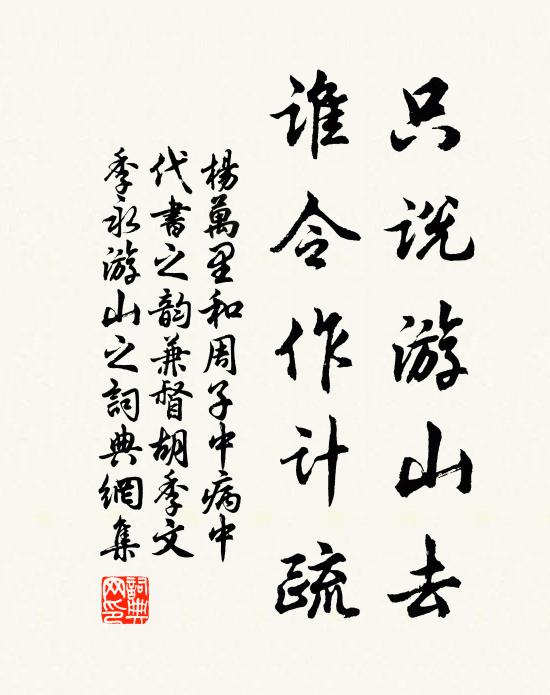 只说游山去
谁令作计疏
楊萬里和周子中病中
代書之韵兼督胡季文
季永游山之詞典網集
詞典網印